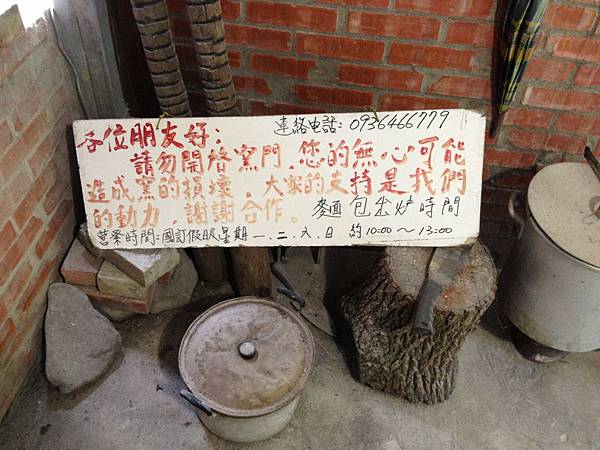 各位朋友好： 連絡電話：0936466779
請勿開啓窯門．您的無心可能
造成窯的損壞．大家的支持是我們
的動力．謝謝合作。 麵包出炉時間
營業時間：國訂假眼星期一．二．六．日 約10:00～13:00